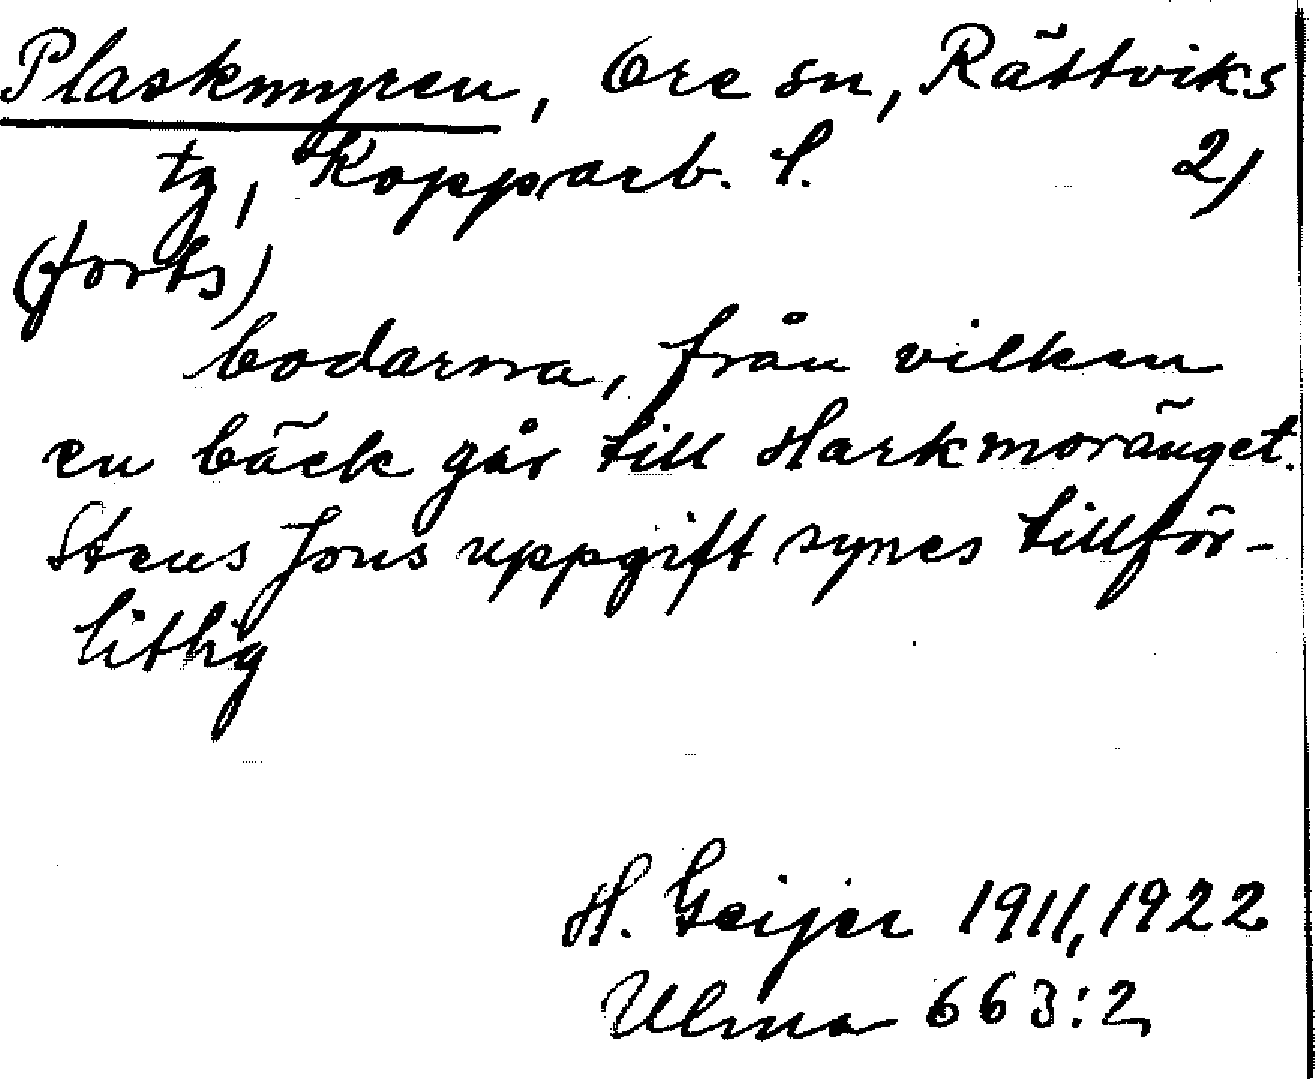 Plaskmyren, Ore sn, Rättviks
tg, Kopparb. l. 2)
(forts)
bodarna, från vilken
en bäck går till Harkmoränget.
Stens Jons uppgift synes tillför-
litlig
H. Geijer 1911, 1922
Ulma 663:2